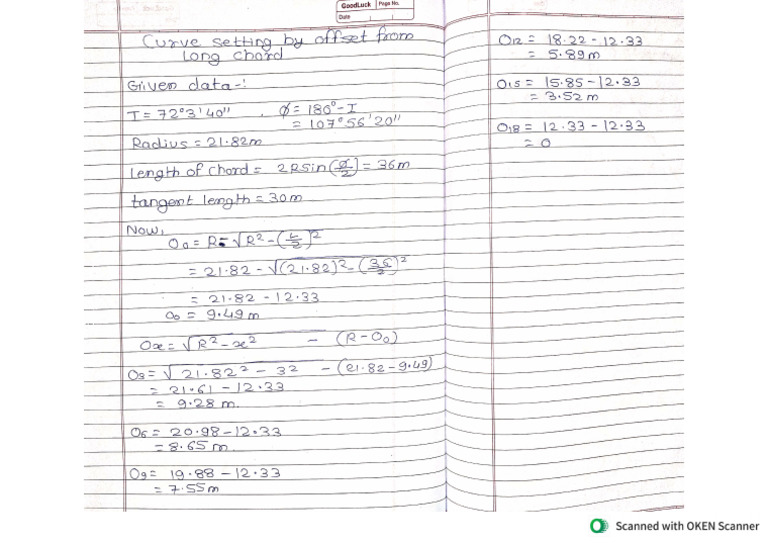 GoodLuck Page No.
Date
Curve setting by offset from
Long chord
Given data-:
I = 72°3'40" . Ø = 180°-I
= 107°56'20"
Radius = 21.82m
Length of chord = 2Rsin(Ø/2) = 36m
tangent length = 30m
Now,
O0 = R-√R²-(L/2)²
= 21.82 - √(21.82)²-(36/2)²
= 21.82 - 12.33
O0 = 9.49m
Ox = √R²-x² - (R-O0)
O3 = √21.82² - 3² - (21.82-9.49)
= 21.61 - 12.33
= 9.28 m.
O6 = 20.98-12.33
= 8.65 m.
O9 = 19.88-12.33
= 7.55m
O12 = 18.22-12.33
= 5.89m
O15 = 15.85-12.33
= 3.52 m
O18 = 12.33-12.33
= 0
Scanned with OKEN Scanner